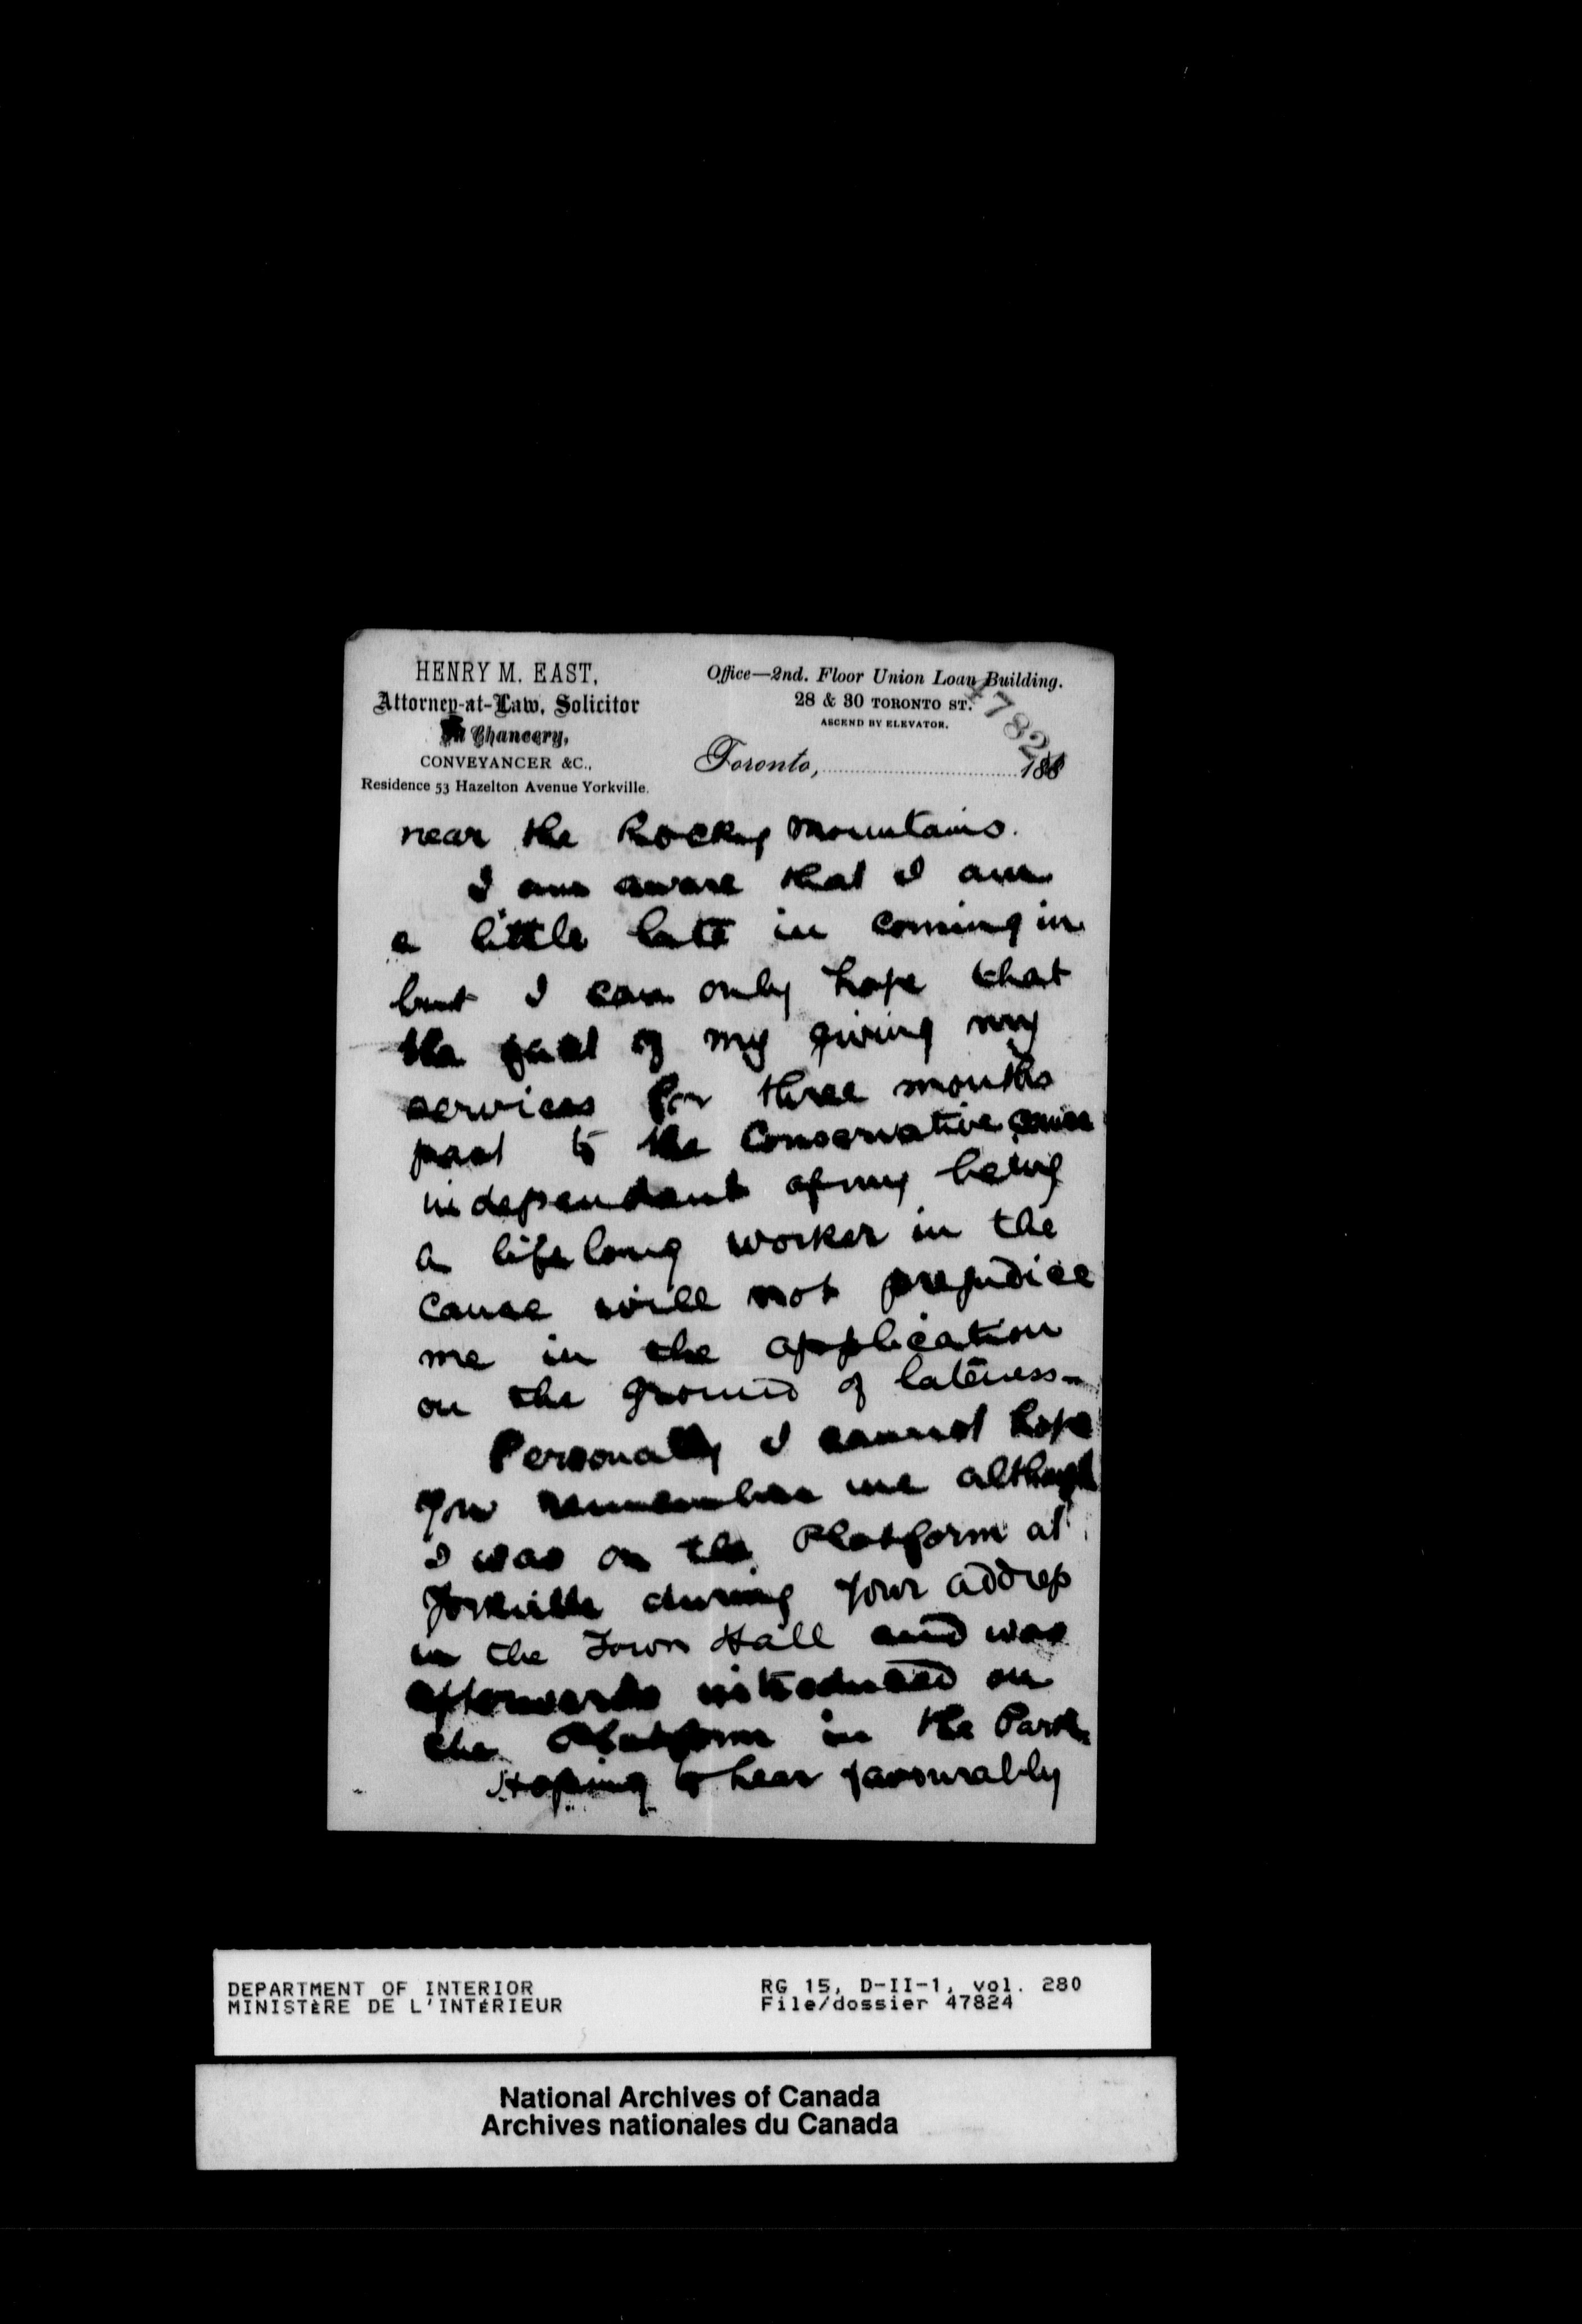 HENRY M. EAST,
Attorney-at-Law, Solicitor
In Chancery,
CONVEYANCER &C.,
Residence 53 Hazelton Avenue Yorkville.
Office—2nd. Floor Union Loan Building.
28 & 30 TORONTO ST.
ASCEND BY ELEVATOR.
47824
Toronto, 188
near the Rocky Mountains.
I am aware that I am
a little late in coming in
but I can only hope that
the fact of my giving my
services for three months
past to the Conservative cause
independant of my being
a lifelong worker in the
cause will not prejudice
me in the application
on the ground of lateness-
Personally I cannot hope
you remember me although
I was on the Platform at
Yorkville during your address
in the Town Hall and was
afterwards introduced on
the Platform in the Park.
Hoping to hear favourably
DEPARTMENT OF INTERIOR
MINISTÈRE DE L'INTÉRIEUR
RG 15, D-II-1, vol. 280
File/dossier 47824
National Archives of Canada
Archives nationales du Canada